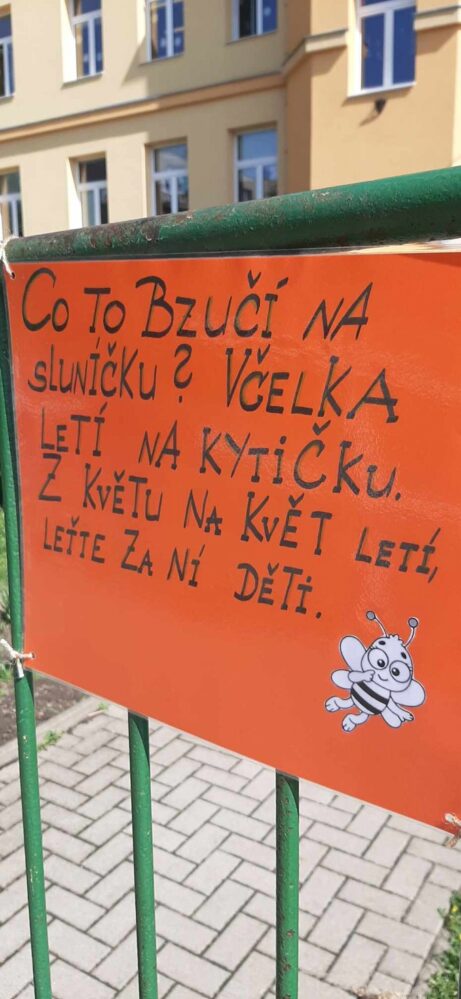 Co to Bzučí na
sluníčku? Včelka
letí na kytičku.
Z květu na květ letí,
leťte za ní děti.